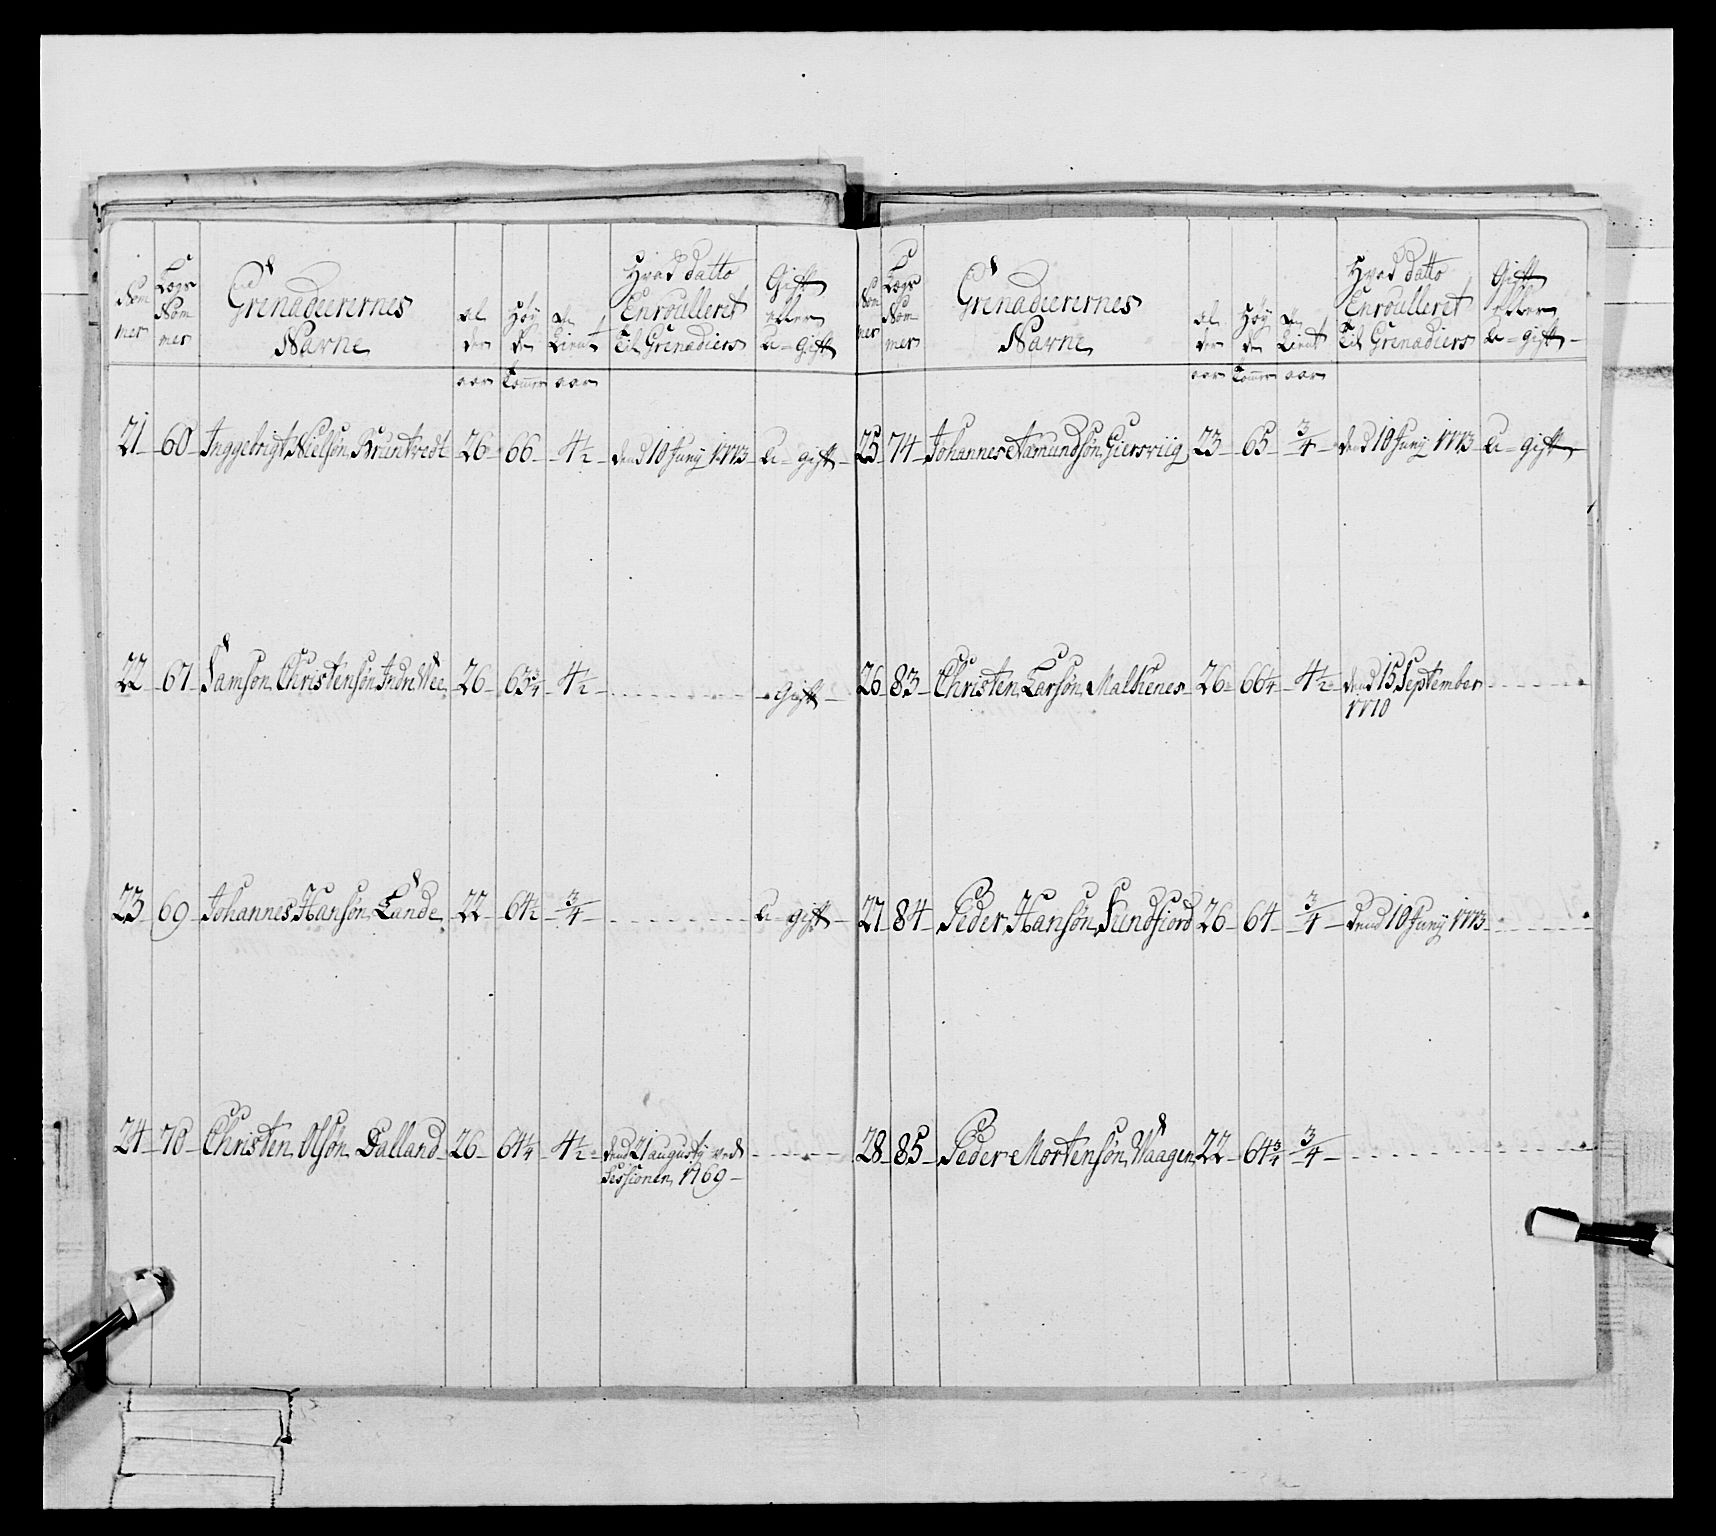 Nom
mer
Lægs
Nom
mer
Grenadeerernes
Navne
al
der
Høy
de
Tient
Hvad datto
Enroulleret
til Grenadiers
Gift
eller
U-gift
aar Tommer aar
21 60 Inggebrigt Nielsøn Bruntvedt 26 66 4½ dend 10 Juny 1773 U-gift
22 67 Samson Christensøn Indre Wee 26 63¾ 4½ Gift
23 69 Johannes Hansøn Lunde 22 64½ ¾ U-gift
24 70 Christen Olsøn Dalland 26 64¼ 4½ dend 21 augusty ved
Sessionen 1769
Nom
mer
Lægs
Nom
mer
Grenadeerernes
Navne
al
der
Høy
de
Tient
Hvad datto
Enroulleret
til Grenadiers
Gift
eller
U-gift
aar Tommer aar
25 74 Johannes Aamundsøn Giersviig 23 65 ¾ dend 10 Juny 1773 U-gift
26 83 Christen Larsøn Malkenes 26 66¼ 4½ dend 15 September
1770
27 84 Peder Hansøn Sundfiord 26 64 ¾ dend 10 Juny 1773
28 85 Peder Mortensøn Waagen 22 64¾ ¾